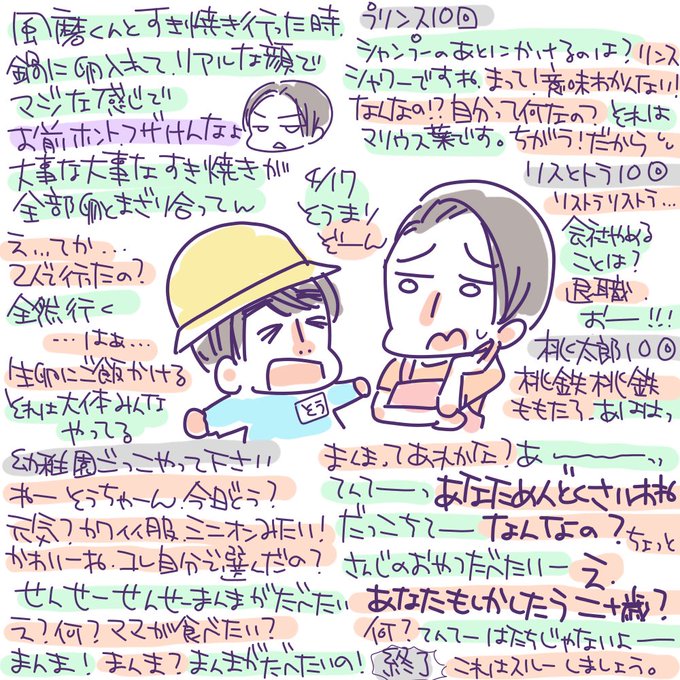 風磨くんとすき焼き行った時、
鍋に卵入れて、リアルな顔で
マジな感じで
お前ホントフザけんなよ
大事な大事なすき焼きが
全部卵とまざり合ってん
え…てか…
2人で行ったの?
全然行く
…はぁ…
生卵にご飯かける
それは大体みんな
やってる
プリンス10回
シャンプーのあとにかけるのは?リンス
シャワーですね。まって!意味わかんない!
なんなの!?自分って何なの?それは
マリウス葉です。ちがう!だから
4/17
とうまり
ぞーん
リストとラ10回
リストラリストラ…
会社やめる
ことは?
退職
おー!!!
桃太郎10回
桃鉄桃鉄
ももたろ、あはは
とう
幼稚園ごっこやって下さい
ねーとうちゃーん、今日どう?
元気?カワイイ服、ミニオンみたい!
かわいーね、コレ自分で選んだの?
せんせーせんせーまんまがたべたい
え?何?ママが食べたい?
まんま!まんま?まんまがたべたいの!
まんまってあれかな?あーーっ
てんてーっあなためんどくさいわね
だっこちてーなんなの?ちょっと
さんじのおやつたべたいーえ、
あなたもしかしたら二十歳?
何?てんてーはたちじゃないよー
終了 これはスルーしましょう。